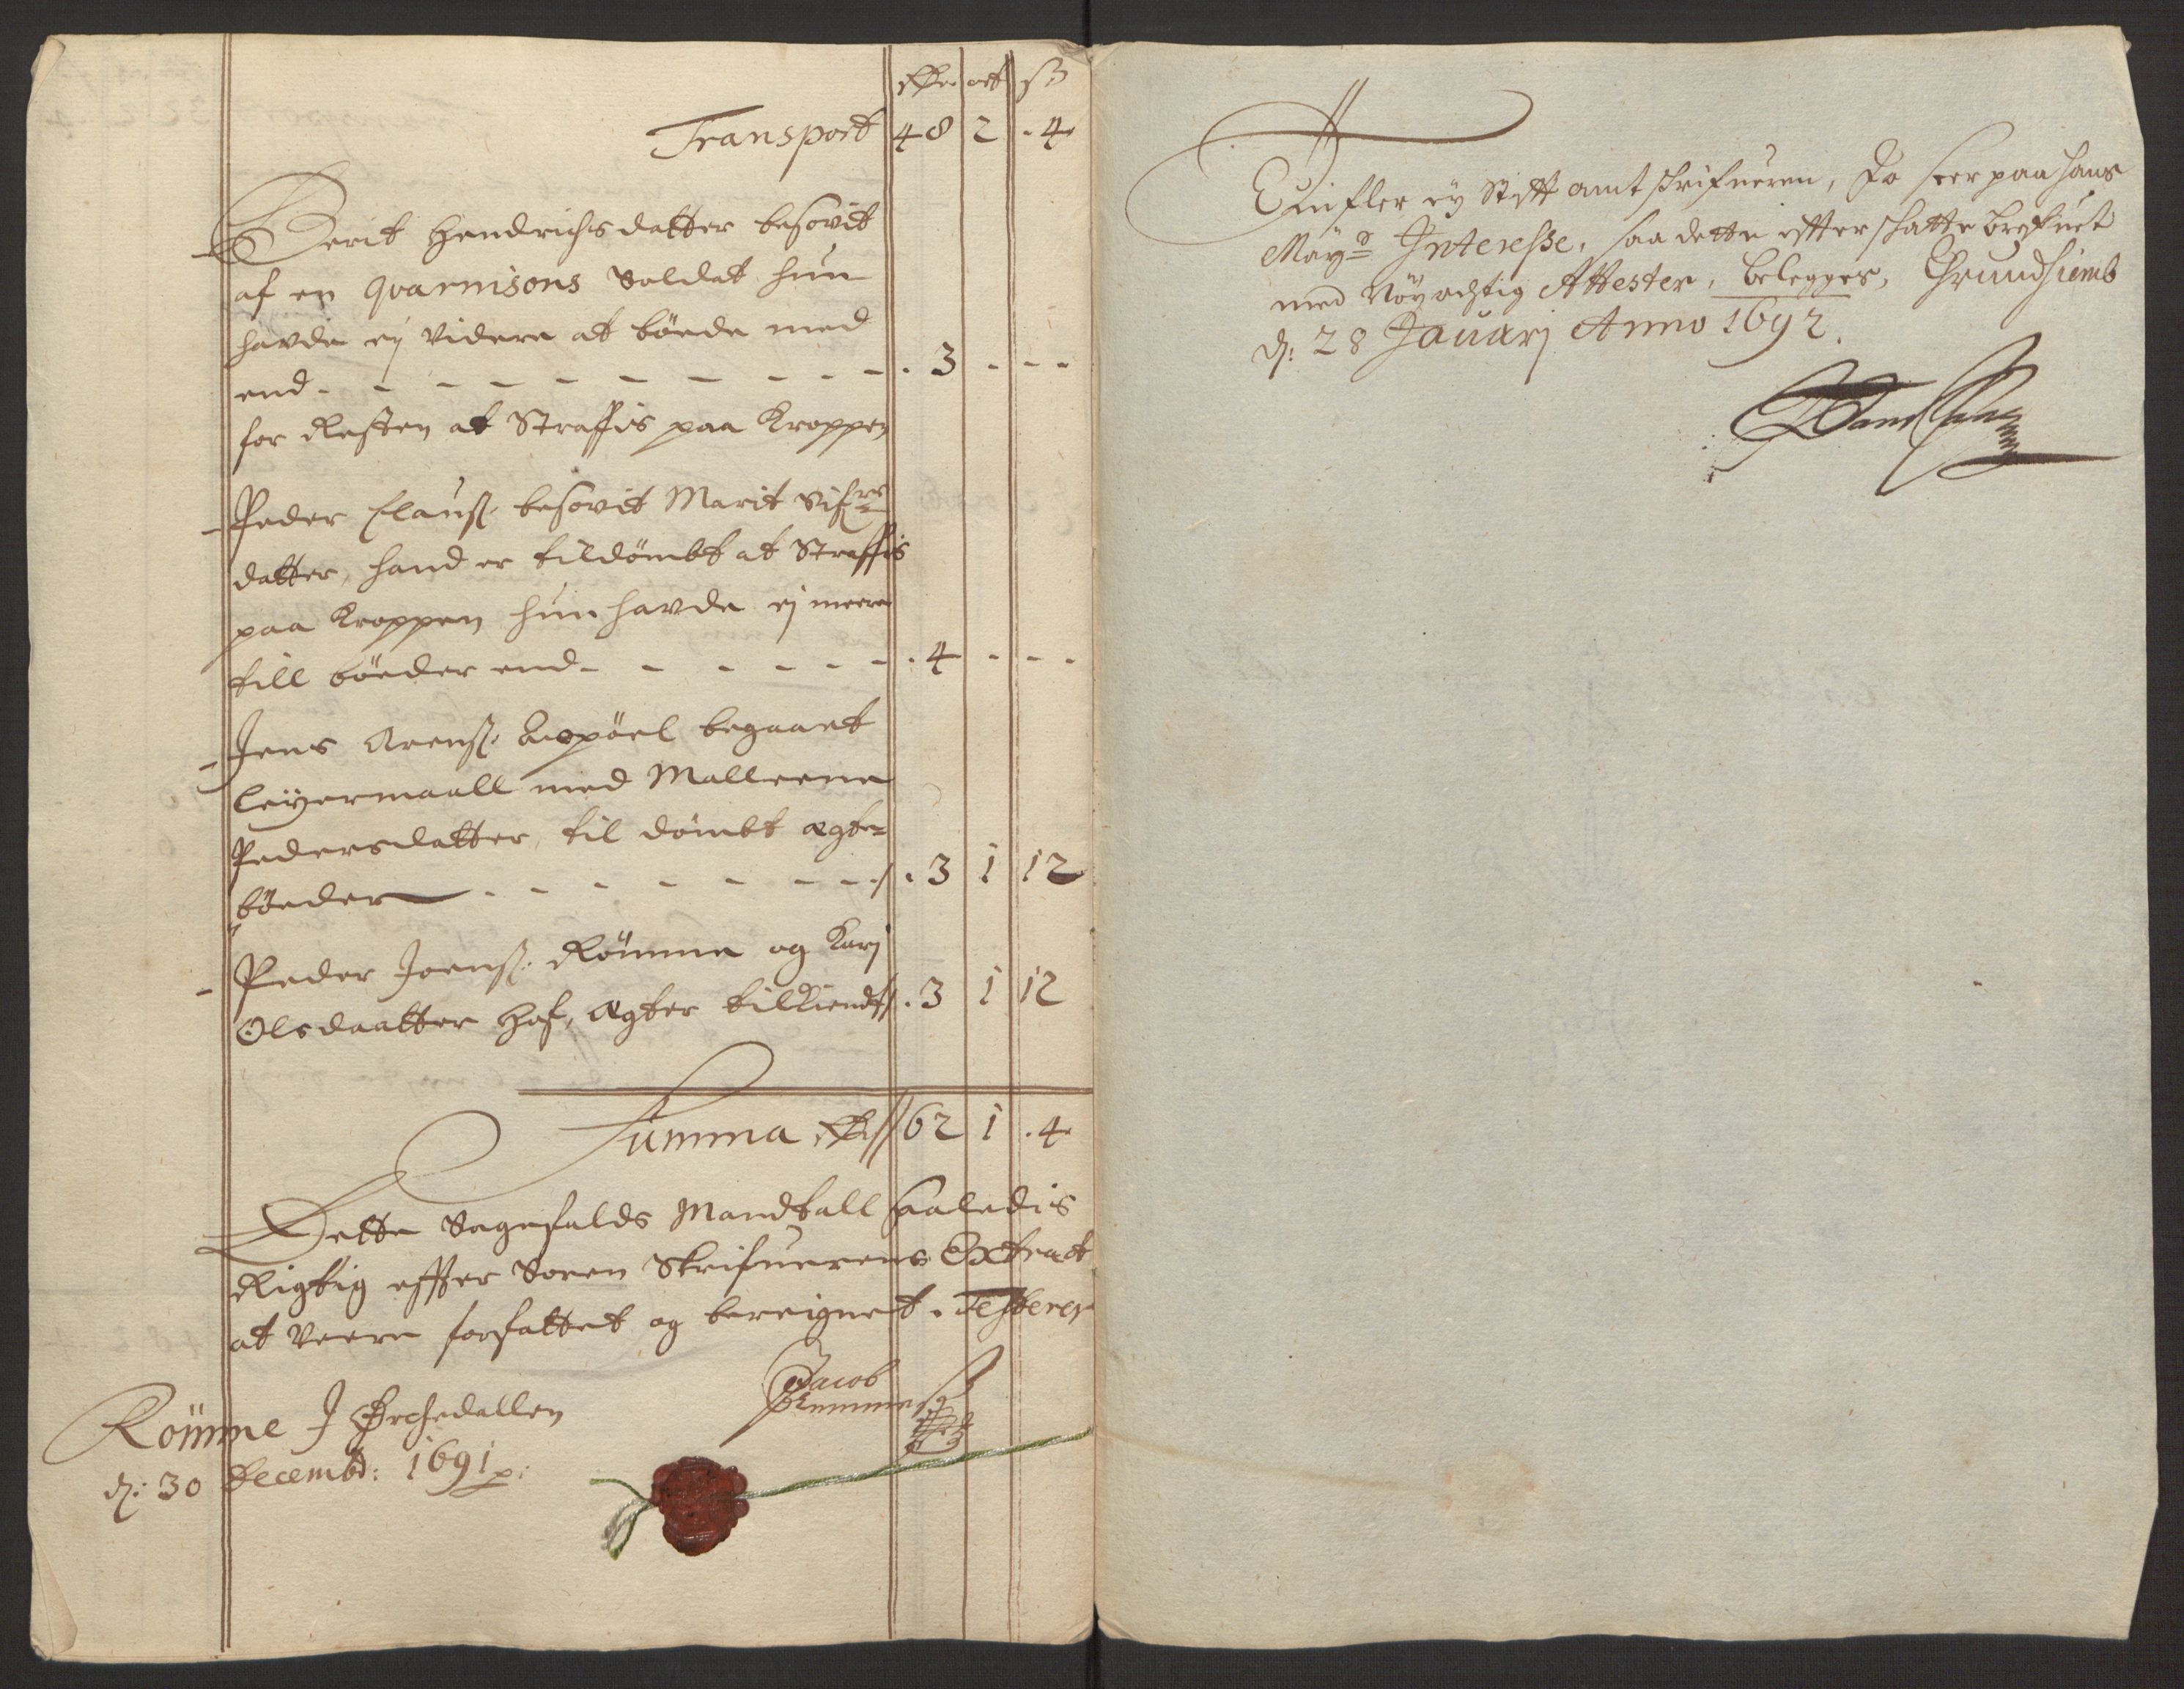 Rdr ort ß
Transport 48 2 . 4
Berit Hendrichsdatter besovit
af en quarnisons Soldat hun
hafde ej videre at bøede med
end - - - - - - - - - . 3 - - -
for Resten at Straffis paa Kroppen
Peder Clauß. besovit Marit
datter, hand er tildømbt at Straffis
paa Kroppen hun hafde ej meere
till bøeder end - - - - - - . 4 - - -
Jens Arenß. begaaet
leyermaall med Malleene
Pedersdatter, til dømbt ægte-
bøeder - - - - - - - . 3 1 12
Peder Joenß. Rømme og Karj
Olsdaatter Hof, ægter tilkiendt . 3 1 12
Summa Rdr 62 1 . 4
Dette Sagefalds Mandtall saaledis
Rigtig effter Soren Skrifuerens Extract
at veere forfattet og bereignet. Testerer
Jacob
Rømme J Orchedallen
d: 30 Decembd: 1691 p:
ey Stift amtschrifueren, Jo seer paa hans
Mayß Interesse, saa dette efterschatte brefuet
med Nöyachtig Attester, belegges,
d: 28 Januarj Anno 1692.